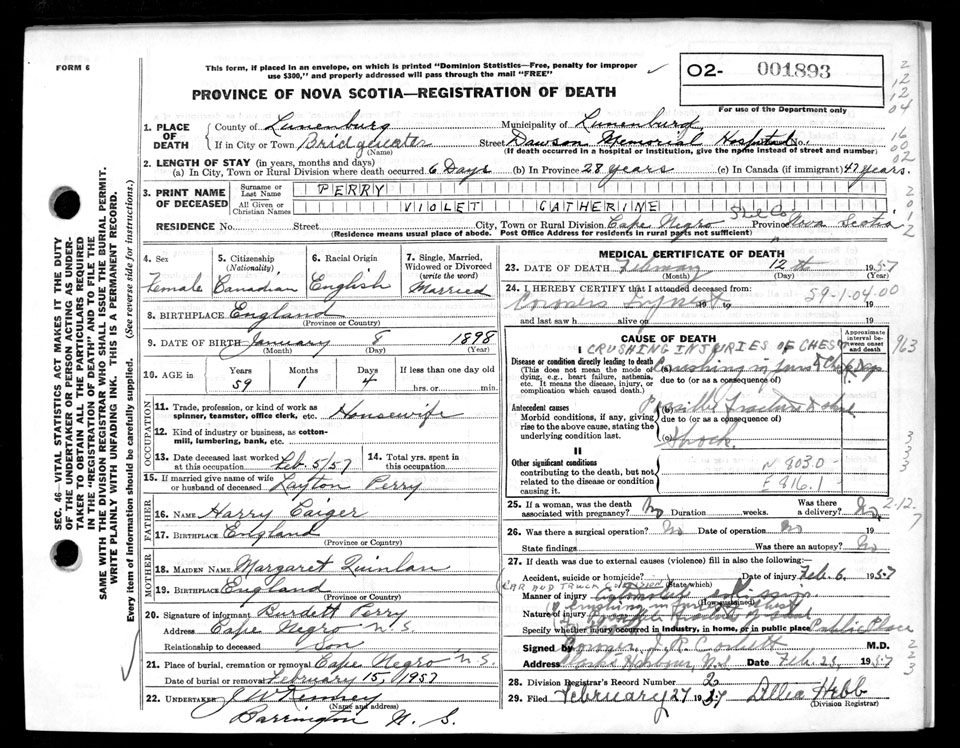 FORM 6
This form, if placed in an envelope, on which is printed "Dominion Statistics—Free, penalty for improper
use $300," and properly addressed will pass through the mail "FREE"
O2- 001893
For use of the Department only
PROVINCE OF NOVA SCOTIA—REGISTRATION OF DEATH
1. PLACE OF DEATH County of Lunenburg Municipality of Lunenburg
If in City or Town Bridgewater (Name) Street Dawson Memorial Hospital No.
(If death occurred in a hospital or institution, give the name instead of street and number)
2. LENGTH OF STAY (in years, months and days)
(a) In City, Town or Rural Division where death occurred 6 Days (b) In Province 28 years (c) In Canada (if immigrant) 47 years.
3. PRINT NAME OF DECEASED Surname or Last Name PERRY
All Given or Christian Names VIOLET CATHERINE
Shel Co
RESIDENCE No. Street City, Town or Rural Division Cape Negro Province Nova Scotia
(Residence means usual place of abode. Post Office Address for residents in rural parts not sufficient)
4. Sex Female
5. Citizenship (Nationality) Canadian
6. Racial Origin English
7. Single, Married, Widowed or Divorced (write the word) Married
8. BIRTHPLACE England
(Province or Country)
9. DATE OF BIRTH January 8 1898
(Month) (Day) (Year)
10. AGE in Years 59 Months 1 Days 4 If less than one day old hrs. or min.
OCCUPATION
11. Trade, profession, or kind of work as spinner, teamster, office clerk, etc. Housewife
12. Kind of industry or business, as cotton-mill, lumbering, bank, etc.
13. Date deceased last worked at this occupation Feb. 5/57
14. Total yrs. spent in this occupation
15. If married give name of wife or husband of deceased Layton Perry
FATHER
16. NAME Harry Caiger
17. BIRTHPLACE England
(Province or Country)
MOTHER
18. MAIDEN NAME Margaret Quinlan
19. BIRTHPLACE England
(Province or Country)
20. Signature of informant Burdett Perry
Address Cape Negro N.S.
Relationship to deceased Son
21. Place of burial, cremation or removal Cape Negro N.S.
Date of burial or removal February 15, 1957
22. UNDERTAKER J W Kenney
(Name and address)
Barrington N. S.
MEDICAL CERTIFICATE OF DEATH
23. DATE OF DEATH February 12th 1957
(Month) (Day) (Year)
24. I HEREBY CERTIFY that I attended deceased from
Coroners Inquest to 59-1-04.00
19
and last saw h alive on 19
CAUSE OF DEATH
Approximate interval between onset and death
I CRUSHING INJURIES OF CHEST
Disease or condition directly leading to death
(This does not mean the mode of dying, e.g., heart failure, asthenia, etc. It means the disease, injury, or complication which caused death.)
(a) Crushing injuries
due to (or as a consequence of)
Antecedent causes
Morbid conditions, if any, giving rise to the above cause, stating the underlying condition last.
(b) Possible Fracture
due to (or as a consequence of)
(c) Shock.
II
Other significant conditions
contributing to the death, but not related to the disease or condition causing it.
N 803.0
E 816.1
963
25. If a woman, was the death associated with pregnancy? No Duration weeks. Was there a delivery? No
26. Was there a surgical operation? No Date of operation No 19
State findings Was there an autopsy? No
27. If death was due to external causes (violence) fill in also the following:—
Accident, suicide or homicide? (State which) Date of injury Feb. 6 1957
CAR AND TRUCK COLLISION
Manner of injury Automobile collission
(How sustained)
Nature of injury
Specify whether injury occurred in industry, in home, or in public place Public Place
Signed by Coroner M.D.
Address Woods Harbour, N.S. Date Feb. 23, 1957
28. Division Registrar's Record Number 2
29. Filed February 27 1957 Lillia Hebb
(Division Registrar)
SEC. 46—VITAL STATISTICS ACT MAKES IT THE DUTY
OF THE UNDERTAKER OR PERSON ACTING AS UNDER-
TAKER TO OBTAIN ALL THE PARTICULARS REQUIRED
IN THE "REGISTRATION OF DEATH" AND TO FILE THE
SAME WITH THE DIVISION REGISTRAR WHO SHALL ISSUE THE BURIAL PERMIT.
WRITE PLAINLY WITH UNFADING INK. THIS IS A PERMANENT RECORD.
Every item of information should be carefully supplied. (See reverse side for instructions.)